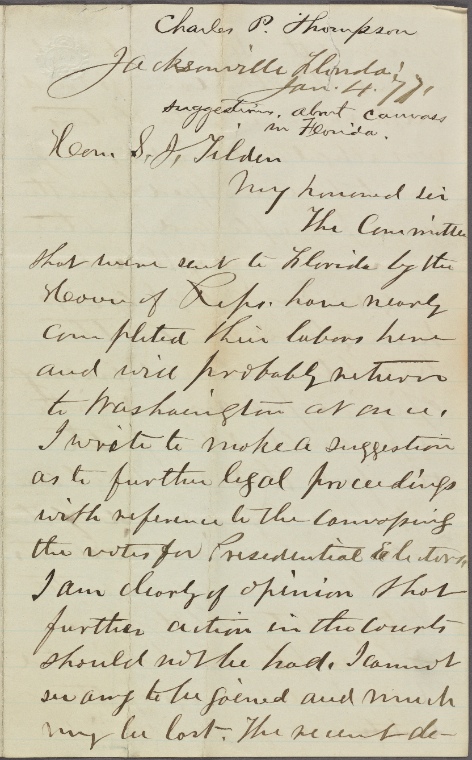 Charles P. Thompson
Jacksonville Florida
Jan. 4. 77.
suggestions about canvass
in Florida.
Hon S. J. Tilden
My honored sir
The Committee
that were sent to Florida by the
House of Reps. have nearly
completed their labors here
and will probably return
to Washington at once.
I write to make a suggestion
as to further legal proceedings
with reference to the canvassing
the votes for Presedential Electors
I am clearly of opinion that
further action in the courts
should not be had. I cannot
see any to be gained and much
may be lost. The recent de-